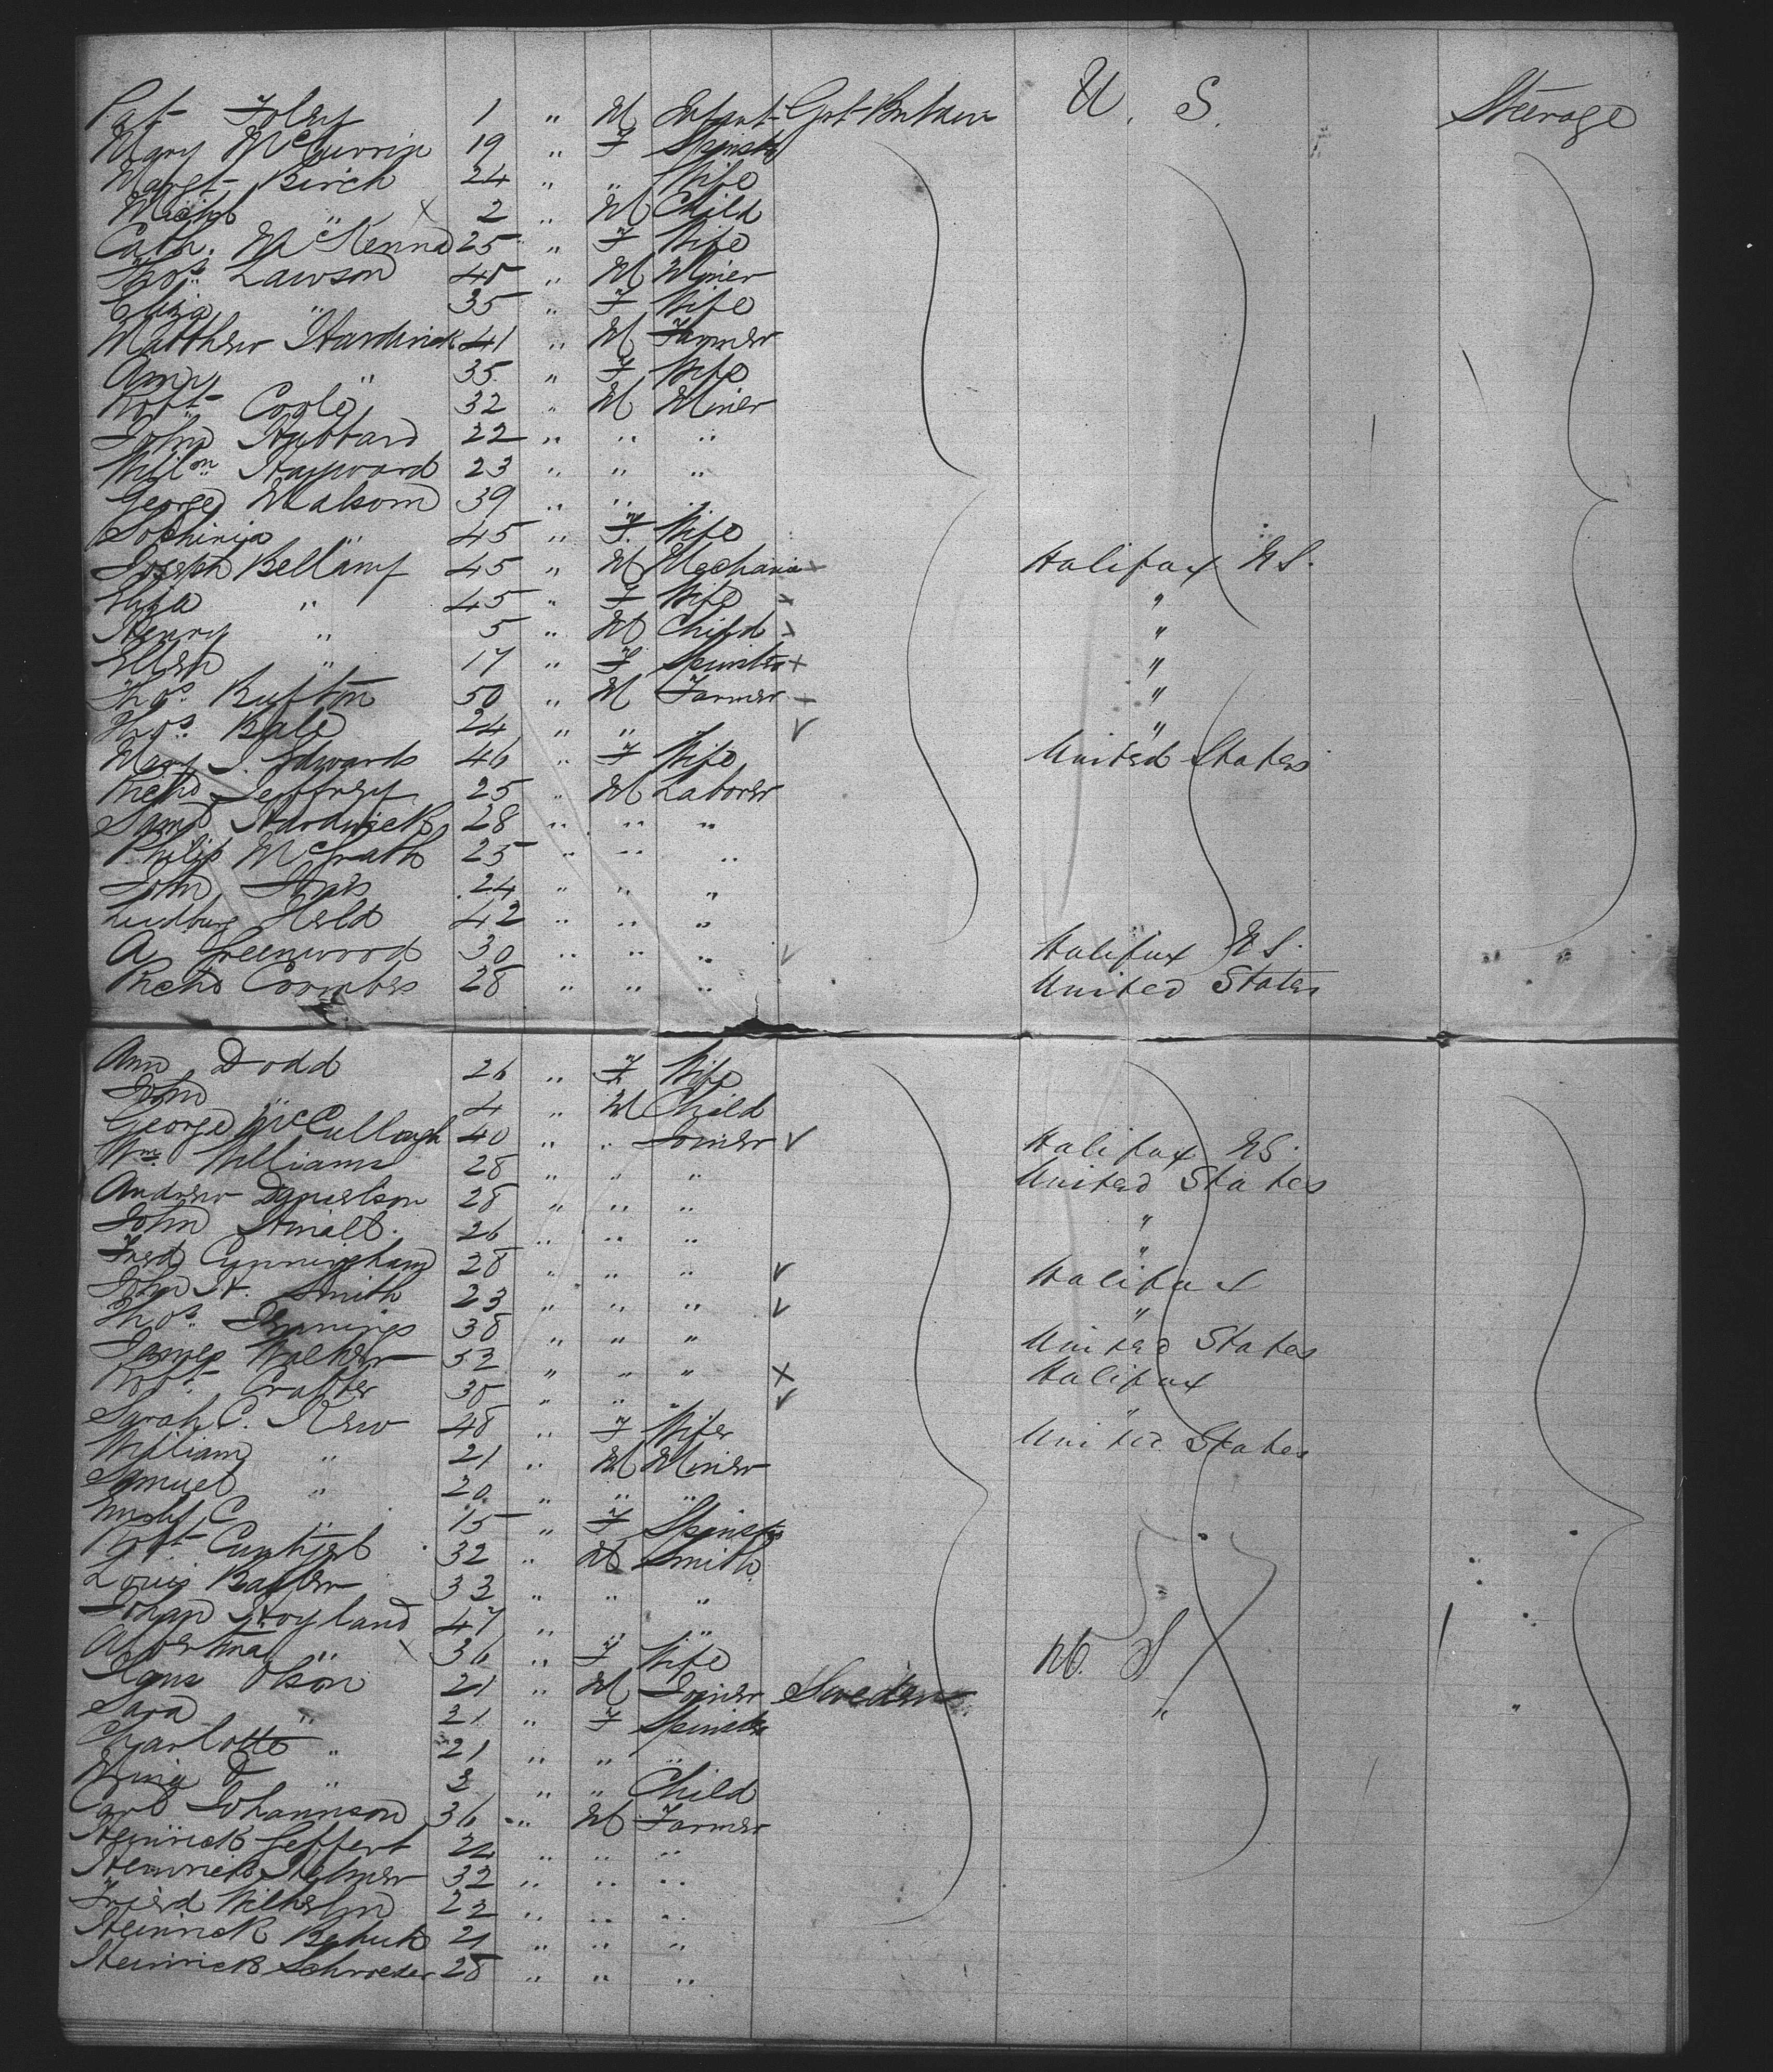 Pat Foley 1 " M Infant Grt Britain U. S. Steerage
Mary McGurrin 19 " F Spinster
Margt Birch 24 " " Wife
" X 2 " M Child
Cath. McKenna 25 " F Wife
Thos. Lawson 45 " M Miner
Eliza " 35 " F Wife
Matthew Hardwick 41 " M Farmer
Amy " 35 " F Wife
Robt. Coole 32 " M Miner
John Hubbard 22 " " "
Willm Hayward 23 " " "
George Malsom 39 " " "
" 45 " F Wife
Joseph Bellamy 45 " M Mechanic Halifax N S.
Eliza " 45 " F Wife "
Henry " 5 " M Child "
Ellen " 17 " F Spinster + "
Thos. Rufton 50 " M Farmer "
Thos. Bale 24 " " " ✓ "
Mary J. Edwards 46 " F Wife United States
Richd Jeffrey 25 " M Laborer
Saml Hardwick 28 " " "
Philip McGrath 25 " " "
John 24 " " "
Held 42 " " "
A Greenwood 30 " " " ✓ Halifax N S.
Richd Coombes 28 " " " United States
Ann Dodd 26 " F Wife
John " 4 " M Child
George McCullough 40 " " Joiner ✓ Halifax N S.
Wm. Williams 28 " " " United States
Andrew Danielson 28 " " " "
John 26 " " " "
Fred Cunningham 28 " " " ✓ Halifax
John H. Smith 23 " " " ✓ "
Thos. Jennings 38 " " " United States
James Walker 52 " " " X Halifax
Robt. Crafter 30 " " " ✓ "
Sarah C. Kew 48 " F Wife United States
William " 21 " M Miner
Samuel " 20 " " "
Emily C " 15 " F Spinster
Robt 32 " M Smith
Louis 33 " " "
Johan Hoyland 47 " " "
Albertina " X 36 " F Wife
Hans Olson 21 " M Joiner Sweden U. S
Sara " 21 " F Spinster " "
Charlotte " 21 " " "
" 3 " " Child
Carl Johannson 36 " M Farmer
Heinrick Geffert 24 " " "
Heinrick Helmer 32 " " "
Fried Wilhelm 22 " " "
Heinrick 21 " " "
Heinrick Schroeder 28 " " "